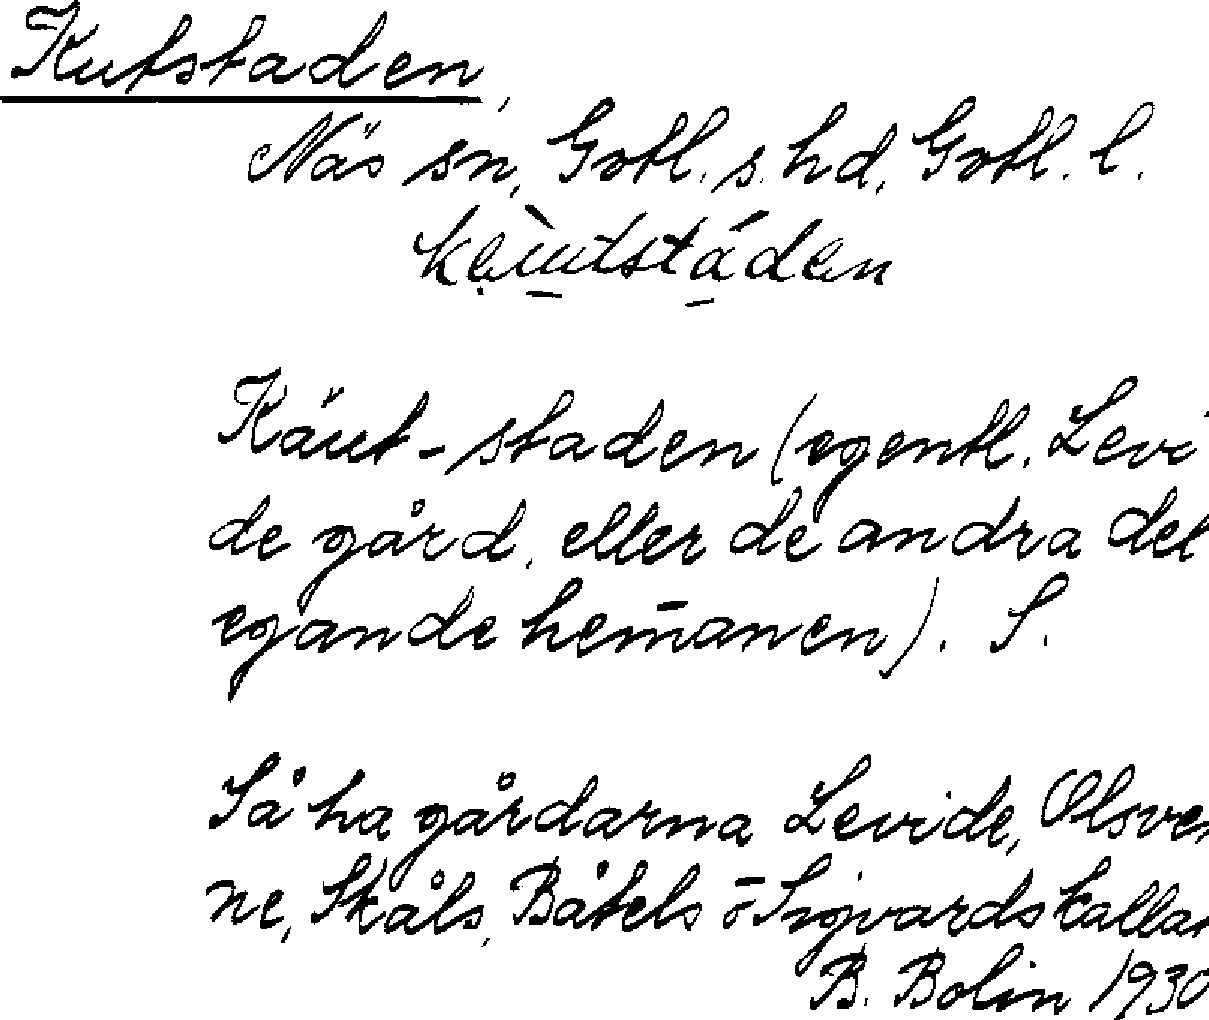 Kutstaden,
Näs sn, Gotl. s. hd, Gotl. l.
Käut-staden (egentl. Levi
de gård, eller de andra del
egande hem̄anen). S.
Så ha gårdarna Levide, Olsver
ne, Skåls, Båtels ō Sigvards kallar
B. Bolin 1930